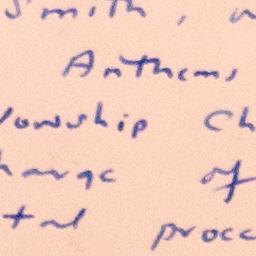 Smith,
Anthems
owship Ch
harge of
tal proce